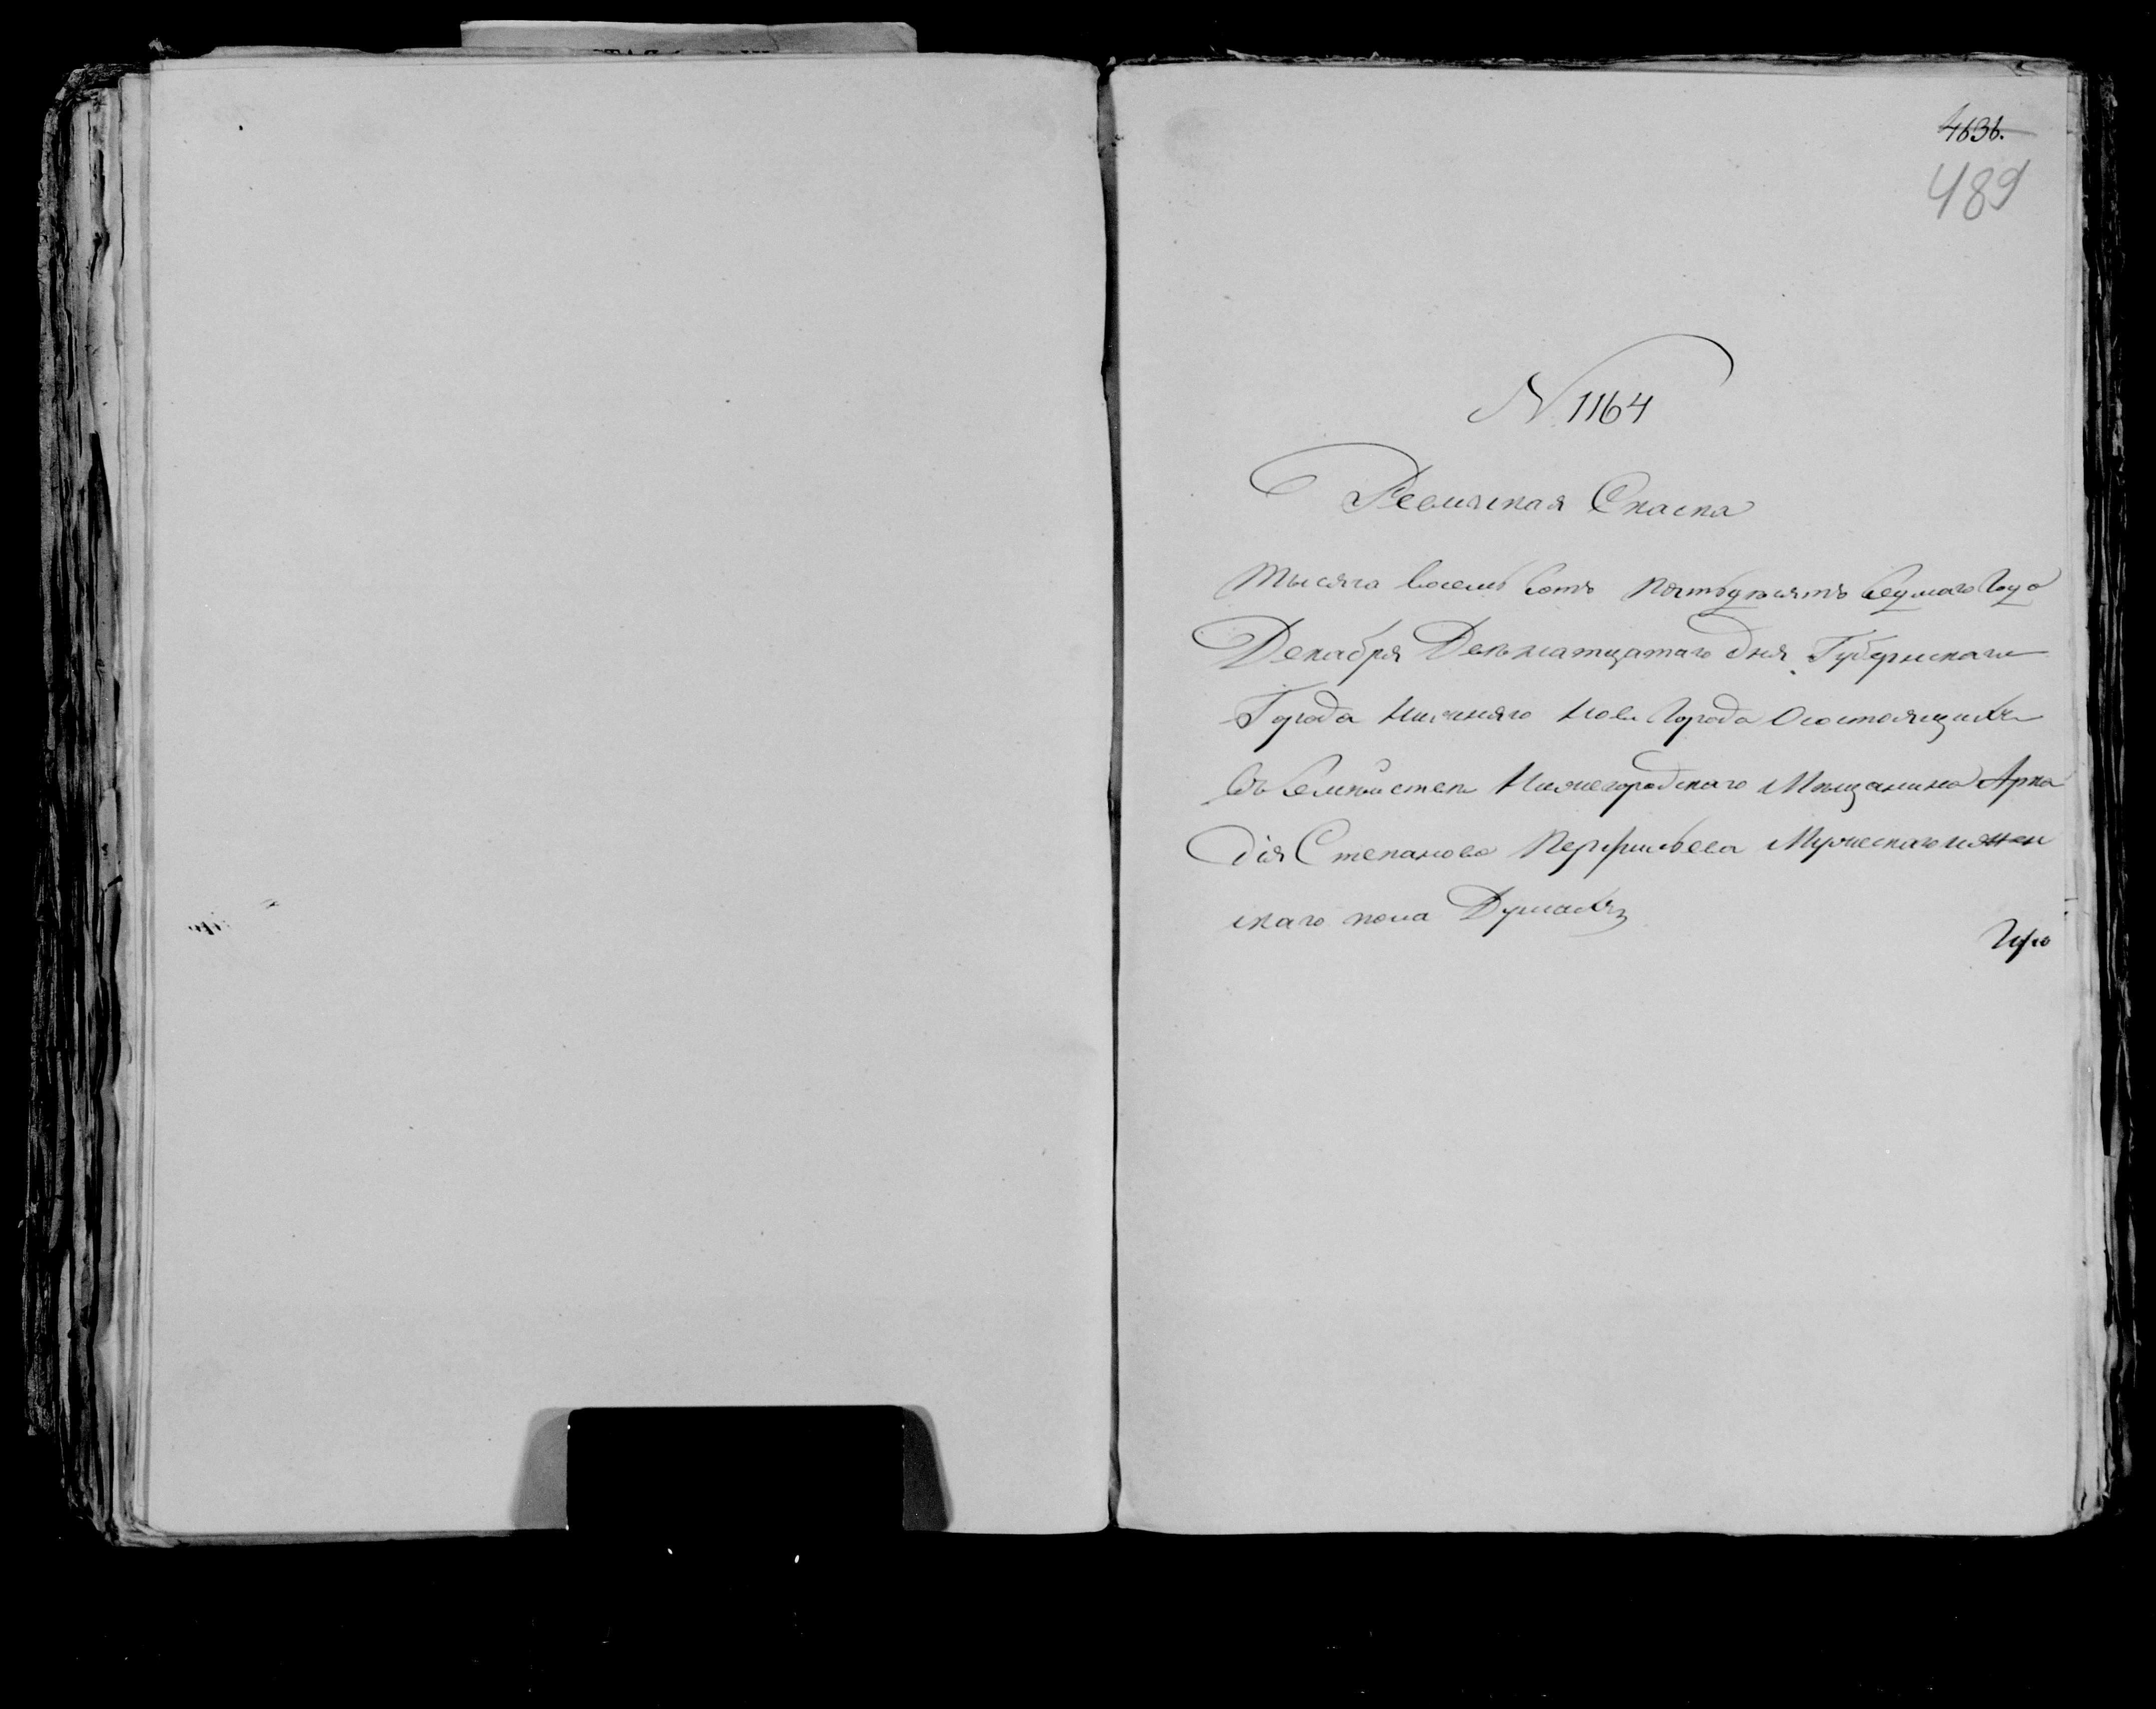 4636.
489
N 1164
Ревиская Скаска
Тысяча восемь сотъ пятьдѣсятъ седмаго Года
Декабря Девѣнатцатаго дня Губернскаго
Города Нижняго Нова Города О состоящихъ
въ Семѣйстве Нижегородскаго Мѣщанина Арка
дія Степанова Перфильева Мужескаго и жен
скаго пола Душахъ